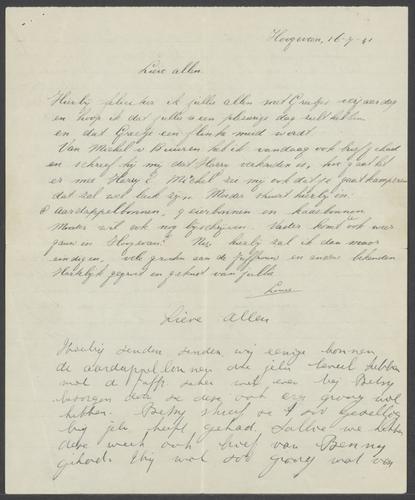 Hoogeveen, 16-7-41
Lieve allen.
Hierbij feliciteer ik jullie allen met Greetjes verjaardag
en hoop ik dat jullie een plezierige dag zult hebben
en dat Greetje een flinke meid wordt.
Van Michel v Buuren heb ik vandaag ook brief gehad
en schreef hij mij dat Harry verhuisd is, hoe gaat het
er mee Harry? Michel zei mij ook dat je gaat kamperen
dat zal wel leuk zijn. Moeder stuurt hierbij in
6 aardappelbonnen, 9 eierbonnen en kaasbonnen
Moeder zal ook nog bijschrijven. Vader komt ook weer
gauw in Hoogeveen? Nu hierbij zal ik dan maar
eindigen, vele groeten aan de juffrouw en andere bekenden
Hartelijk gegroet en gekust van jullie
Louis
Lieve Allen
Hierbij zenden zenden wij eenige bonnen
de aardappelbonnen die jelui teveel hebben
moet de juffr zeker wel even bij Betsy
bezorgen daar ze deze ook erg graag wil
hebben. Betsy schreef ze 't zoo gezellig
bij jelui heeft gehad. Jullie we hebben
deze week ook brief van Benny
gehad. Hij wol zoo graag wat van